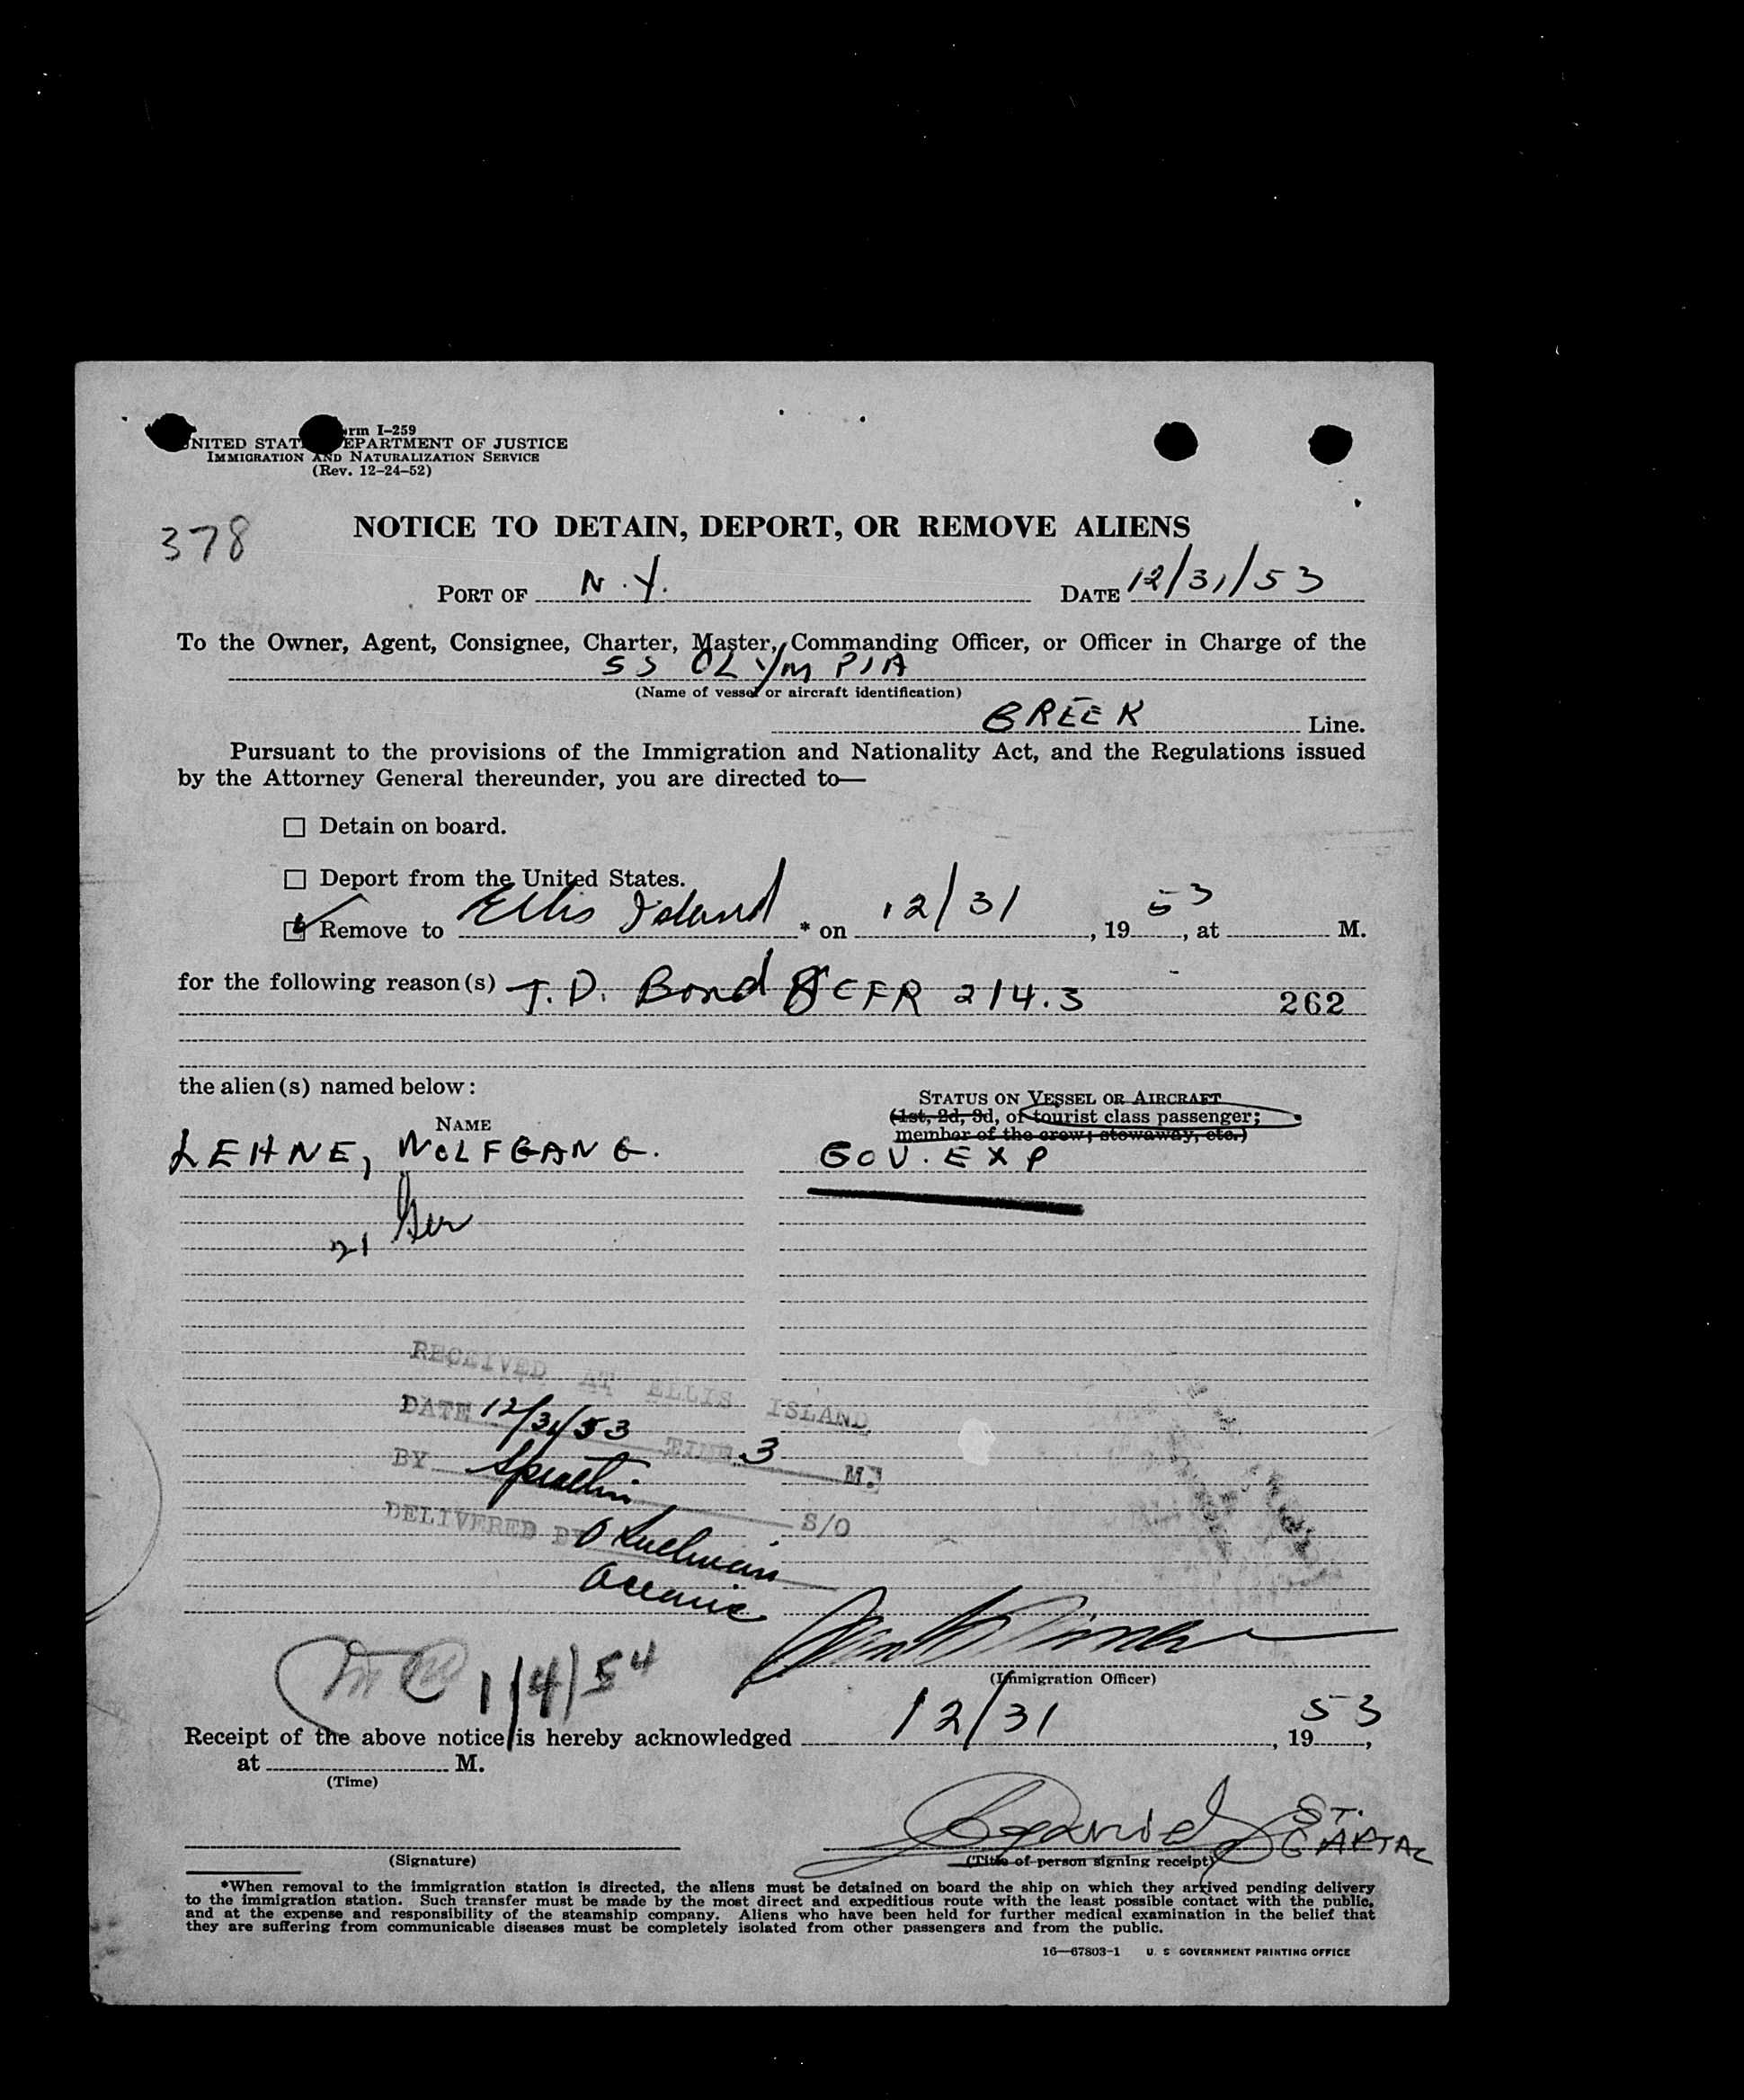 rm I-259
NITED STAT EPARTMENT OF JUSTICE
IMMIGRATION AND NATURALIZATION SERVICE
(Rev. 12-24-52)
378
NOTICE TO DETAIN, DEPORT, OR REMOVE ALIENS
PORT OF N.Y. DATE 12/31/53
To the Owner, Agent, Consignee, Charter, Master, Commanding Officer, or Officer in Charge of the
SS OLYMPIA
(Name of vessel or aircraft identification)
GREEK Line.
Pursuant to the provisions of the Immigration and Nationality Act, and the Regulations issued
by the Attorney General thereunder, you are directed to—
Detain on board.
Deport from the United States.
Remove to Ellis Island * on 12/31, 1953, at M.
for the following reason(s) T.D. Bond 8 CFR 214.3
262
the alien(s) named below:
STATUS ON VESSEL OR AIRCRAFT
NAME (1st, 2d, 3d, or tourist class passenger;
member of the crew; stowaway, etc.)
LEHNE, WOLFGANG. GOV. EXP
21 Ger
RECEIVED AT ELLIS ISLAND
DATE 12/31/53 TIME 3 M.
BY S/O
DELIVERED BY
(Immigration Officer)
1/4/54
Receipt of the above notice is hereby acknowledged 12/31, 1953,
at M.
(Time)
ST.
(Signature) (Title of person signing receipt)
*When removal to the immigration station is directed, the aliens must be detained on board the ship on which they arrived pending delivery
to the immigration station. Such transfer must be made by the most direct and expeditious route with the least possible contact with the public,
and at the expense and responsibility of the steamship company. Aliens who have been held for further medical examination in the belief that
they are suffering from communicable diseases must be completely isolated from other passengers and from the public.
16—67803-1 U. S GOVERNMENT PRINTING OFFICE